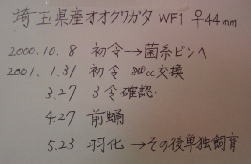 埼玉県産オオクワガタ WF1 ♀44mm
2000.10.8 初令→菌糸ビンへ
2001.1.31 初令 800cc交換
3.27 3令確認
4.27 前蛹
5.23 羽化→その後単独飼育